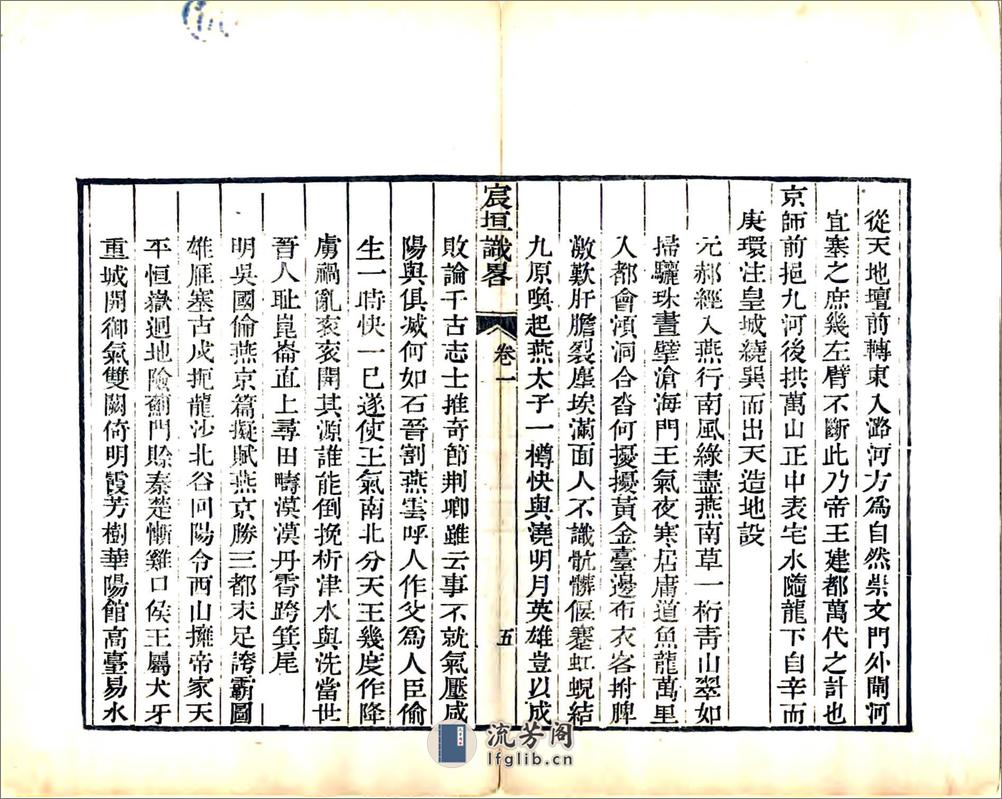 從天地壇前轉東入潞河方為自然崇文門外閘河
宜塞之庶幾左臂不斷此乃帝王建都萬代之計也
京師前挹九河後拱萬山正中表宅水隨龍下自辛而
庚環注皇城繞巽而出天造地設
元郝經入燕行南風綠盡燕南草一桁青山翠如
掃驪珠晝擘滄海門王氣夜寒居庸道魚龍萬里
入都會澒洞合沓何擾擾黃金臺邊布衣客拊脾
激歎肝膽裂塵埃滿面人不識骯髒偃蹇虹蜺結
九原喚起燕太子一樽快與澆明月英雄豈以成
宸垣識畧 卷一 五
敗論千古志士推奇節荆卿雖云事不就氣壓咸
陽與俱滅何如石晉割燕雲呼人作父為人臣偷
生一時快一已遂使王氣南北分天王幾度作降
虜禍亂袞袞開其源誰能倒挽析津水與洗當世
晉人耻崑崙直上尋田疇漠漠丹霄跨箕尾
明吳國倫燕京篇擬賦燕京勝三都未足誇霸圖
雄雁塞古戍扼龍沙北谷回陽令西山擁帝家天
平恒嶽迥地險薊門賒秦楚慚雞口侯王屬犬牙
重城開御氣雙闕倚明霞芳樹華陽館高臺易水
流芳阁
lfglib.cn